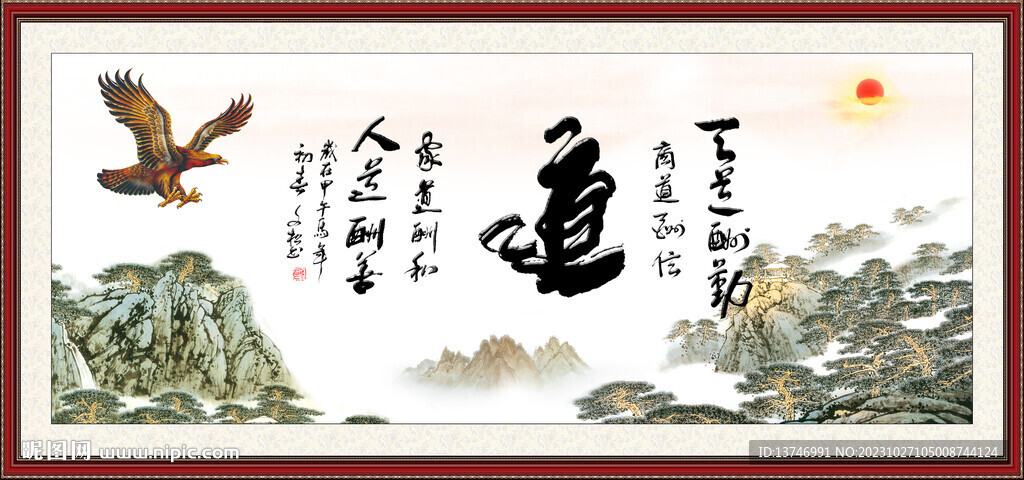 天道酬勤
商道酬信
道
家道酬和
人道酬善
歲在甲午馬年
初春
昵图网 www.nipic.com
ID:13746991 NO:20231027105008744124